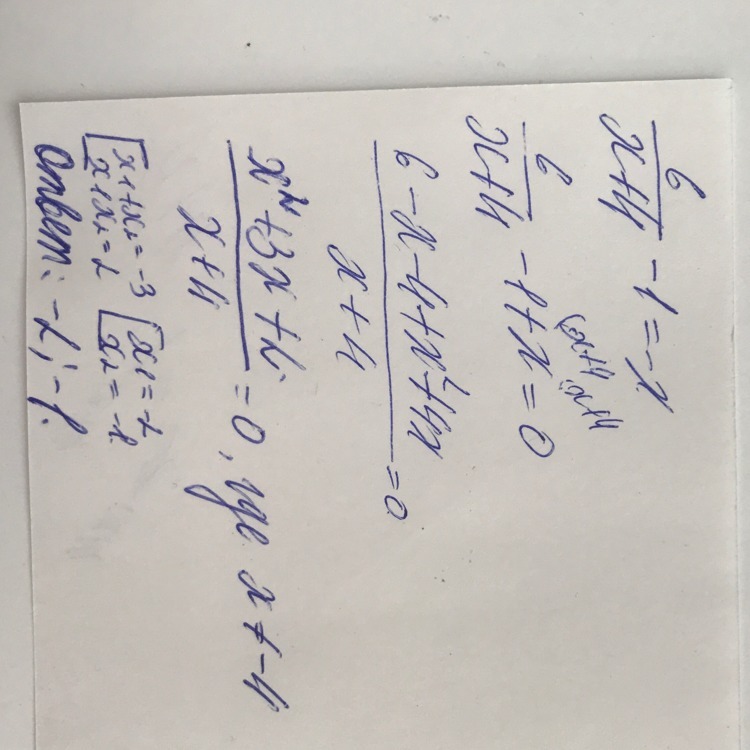 6/(x+4) - 1 = -x
6/(x+4) - 1 + x = 0
(x+4 (x+4
(6 - x - 4 + x² + 4x)/(x+4) = 0
(x² + 3x + 2)/(x+4) = 0, где x ≠ -4
[x₁+x₂ = -3 [x₁ = -2
x₁x₂ = 2 x₂ = -1
Ответ: -2; -1.